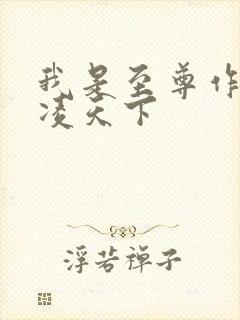 我是至尊作
凌天下
浮若禅子